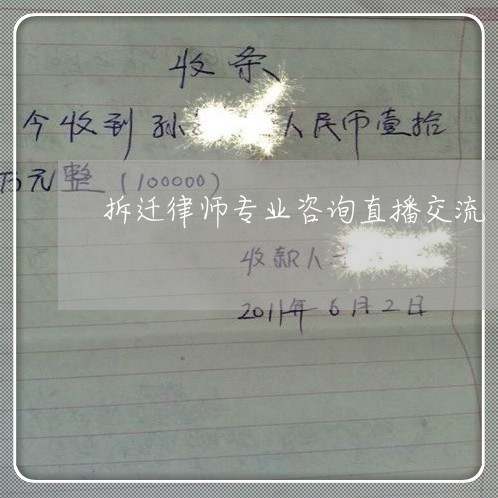 收条
今收到孙 人民币壹拾
万元整（100000）
拆迁律师专业咨询直播交流
收款人
2011年6月2日